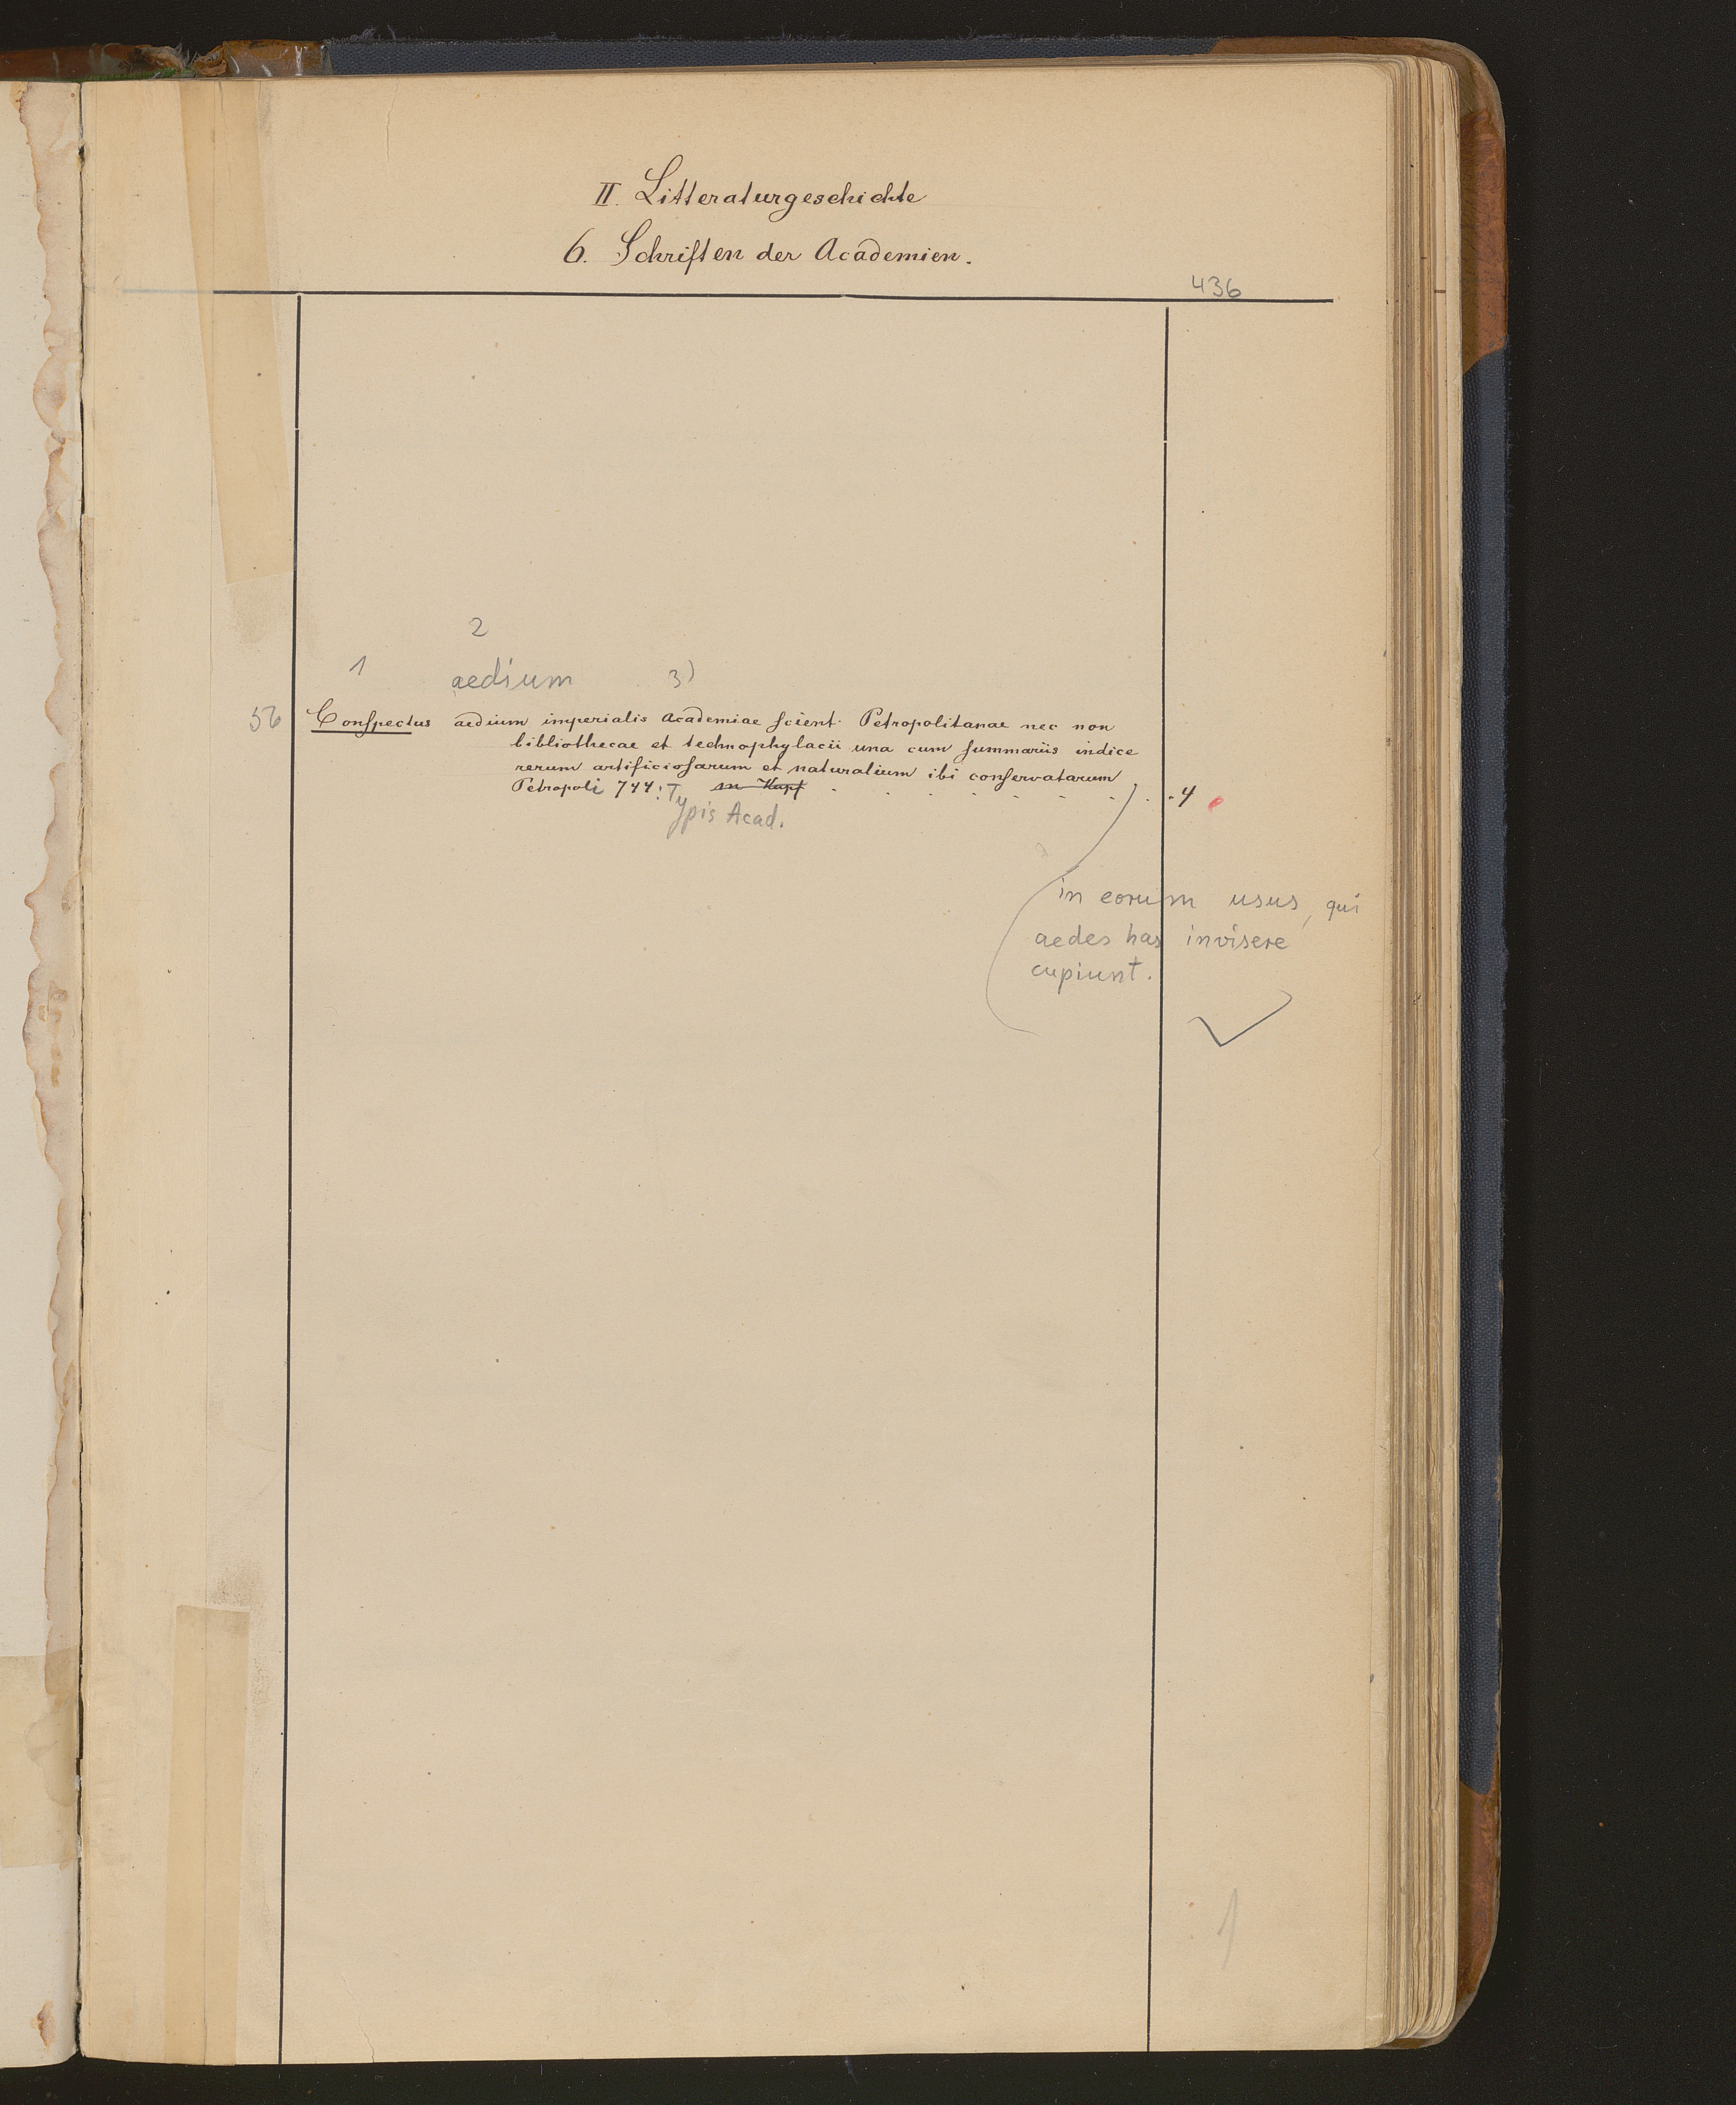 II. Litteraturgeschichte
6. Schriften der Academien.
436
2
1 aedium 3)
56 Conspectus aedium imperialis Academiae scient. Petropolitanae nec non
bibliothecae et technophylacii una cum summariis indice
rerum artificiosarum et naturalium ibi conservatarum
Petropoli 744: m Kupf . . . . . . . . . 4
Typis Acad.
in eorum usus, qui
aedes has invisere
cupiunt.
1